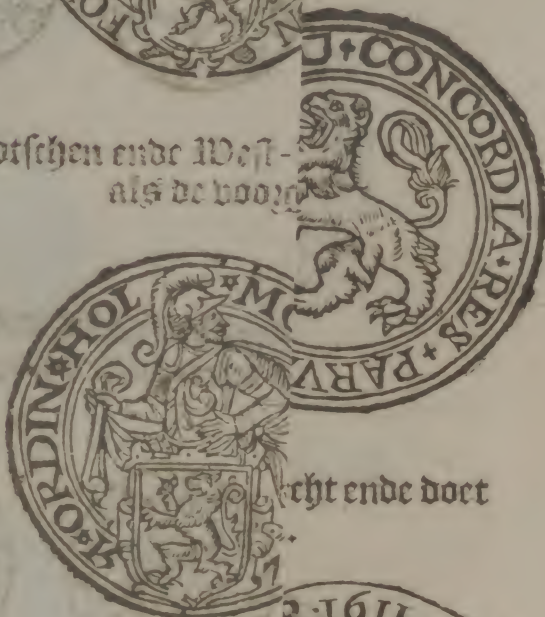 CONCORDIA·RES·PARV
otschen ende West-
als de voorg
ORDIN✶HOL✶M
cht ende doet